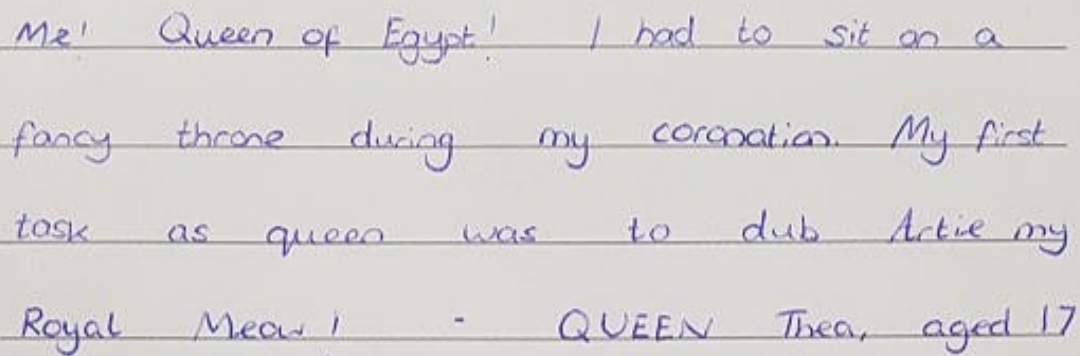 Me! Queen of Egypt! I had to sit on a
fancy throne during my coronation. My first
task as queen was to dub Artie my
Royal Meow! - QUEEN Thea, aged 17